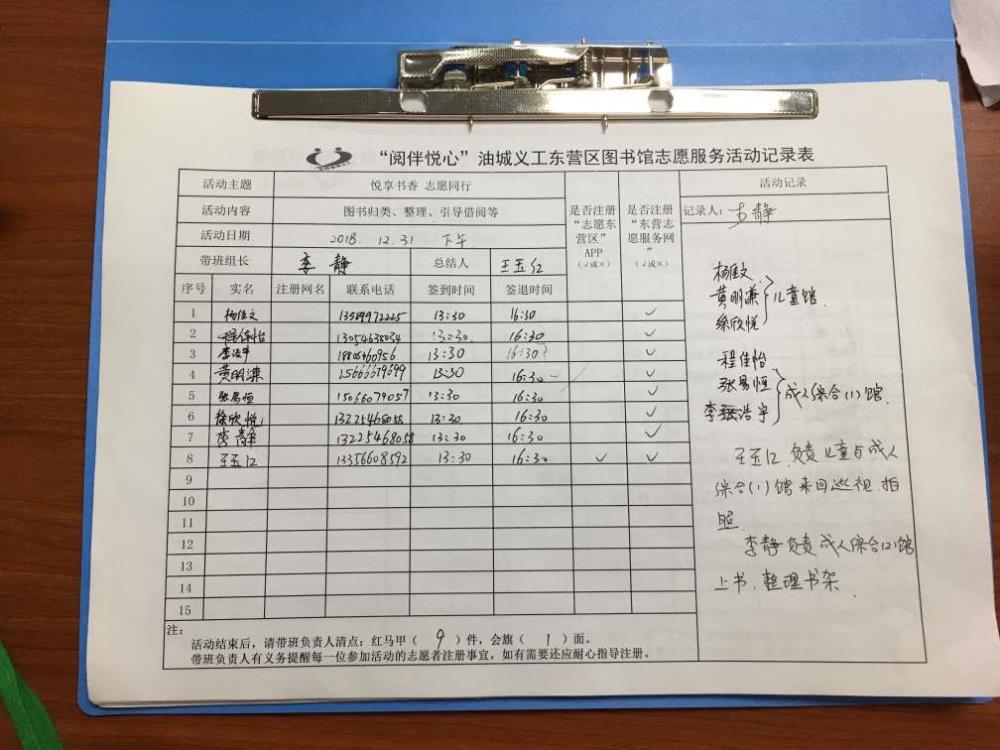 “阅伴悦心”油城义工东营区图书馆志愿服务活动记录表
活动主题 悦享书香 志愿同行 是否注册“志愿东营区”APP（√或×） 是否注册“东营志愿服务网”（√或×） 活动记录
活动内容 图书归类、整理、引导借阅等 记录人：李静
活动日期 2018. 12. 31 下午
带班组长 李静 总结人 王玉红
序号 实名 注册网名 联系电话 签到时间 签退时间
1 杨佳文 13:30 16:30 √
2 程佳怡 13054638034 13:30 16:30 √
3 13:30 16:30 √
4 黄明谦 13:30 16:30 √
5 张易恒 15066079057 13:30 16:30 √
6 徐欣悦 13225468058 13:30 16:30 √
7 李静 13225468058 13:30 16:30 √
8 王玉红 13356608592 13:30 16:30 √ √
9
10
11
12
13
14
15
杨佳文
黄明谦 儿童馆.
徐欣悦
程佳怡
张易恒 成人综合(1)馆.
李浩宇
王玉红 负责儿童与成人
综合(1)馆来回巡视.拍
照.
李静负责成人综合(2)馆
上书.整理书架.
注：
活动结束后，请带班负责人清点：红马甲（ 9 ）件，会旗（ 1 ）面。
带班负责人有义务提醒每一位参加活动的志愿者注册事宜，如有需要还应耐心指导注册。